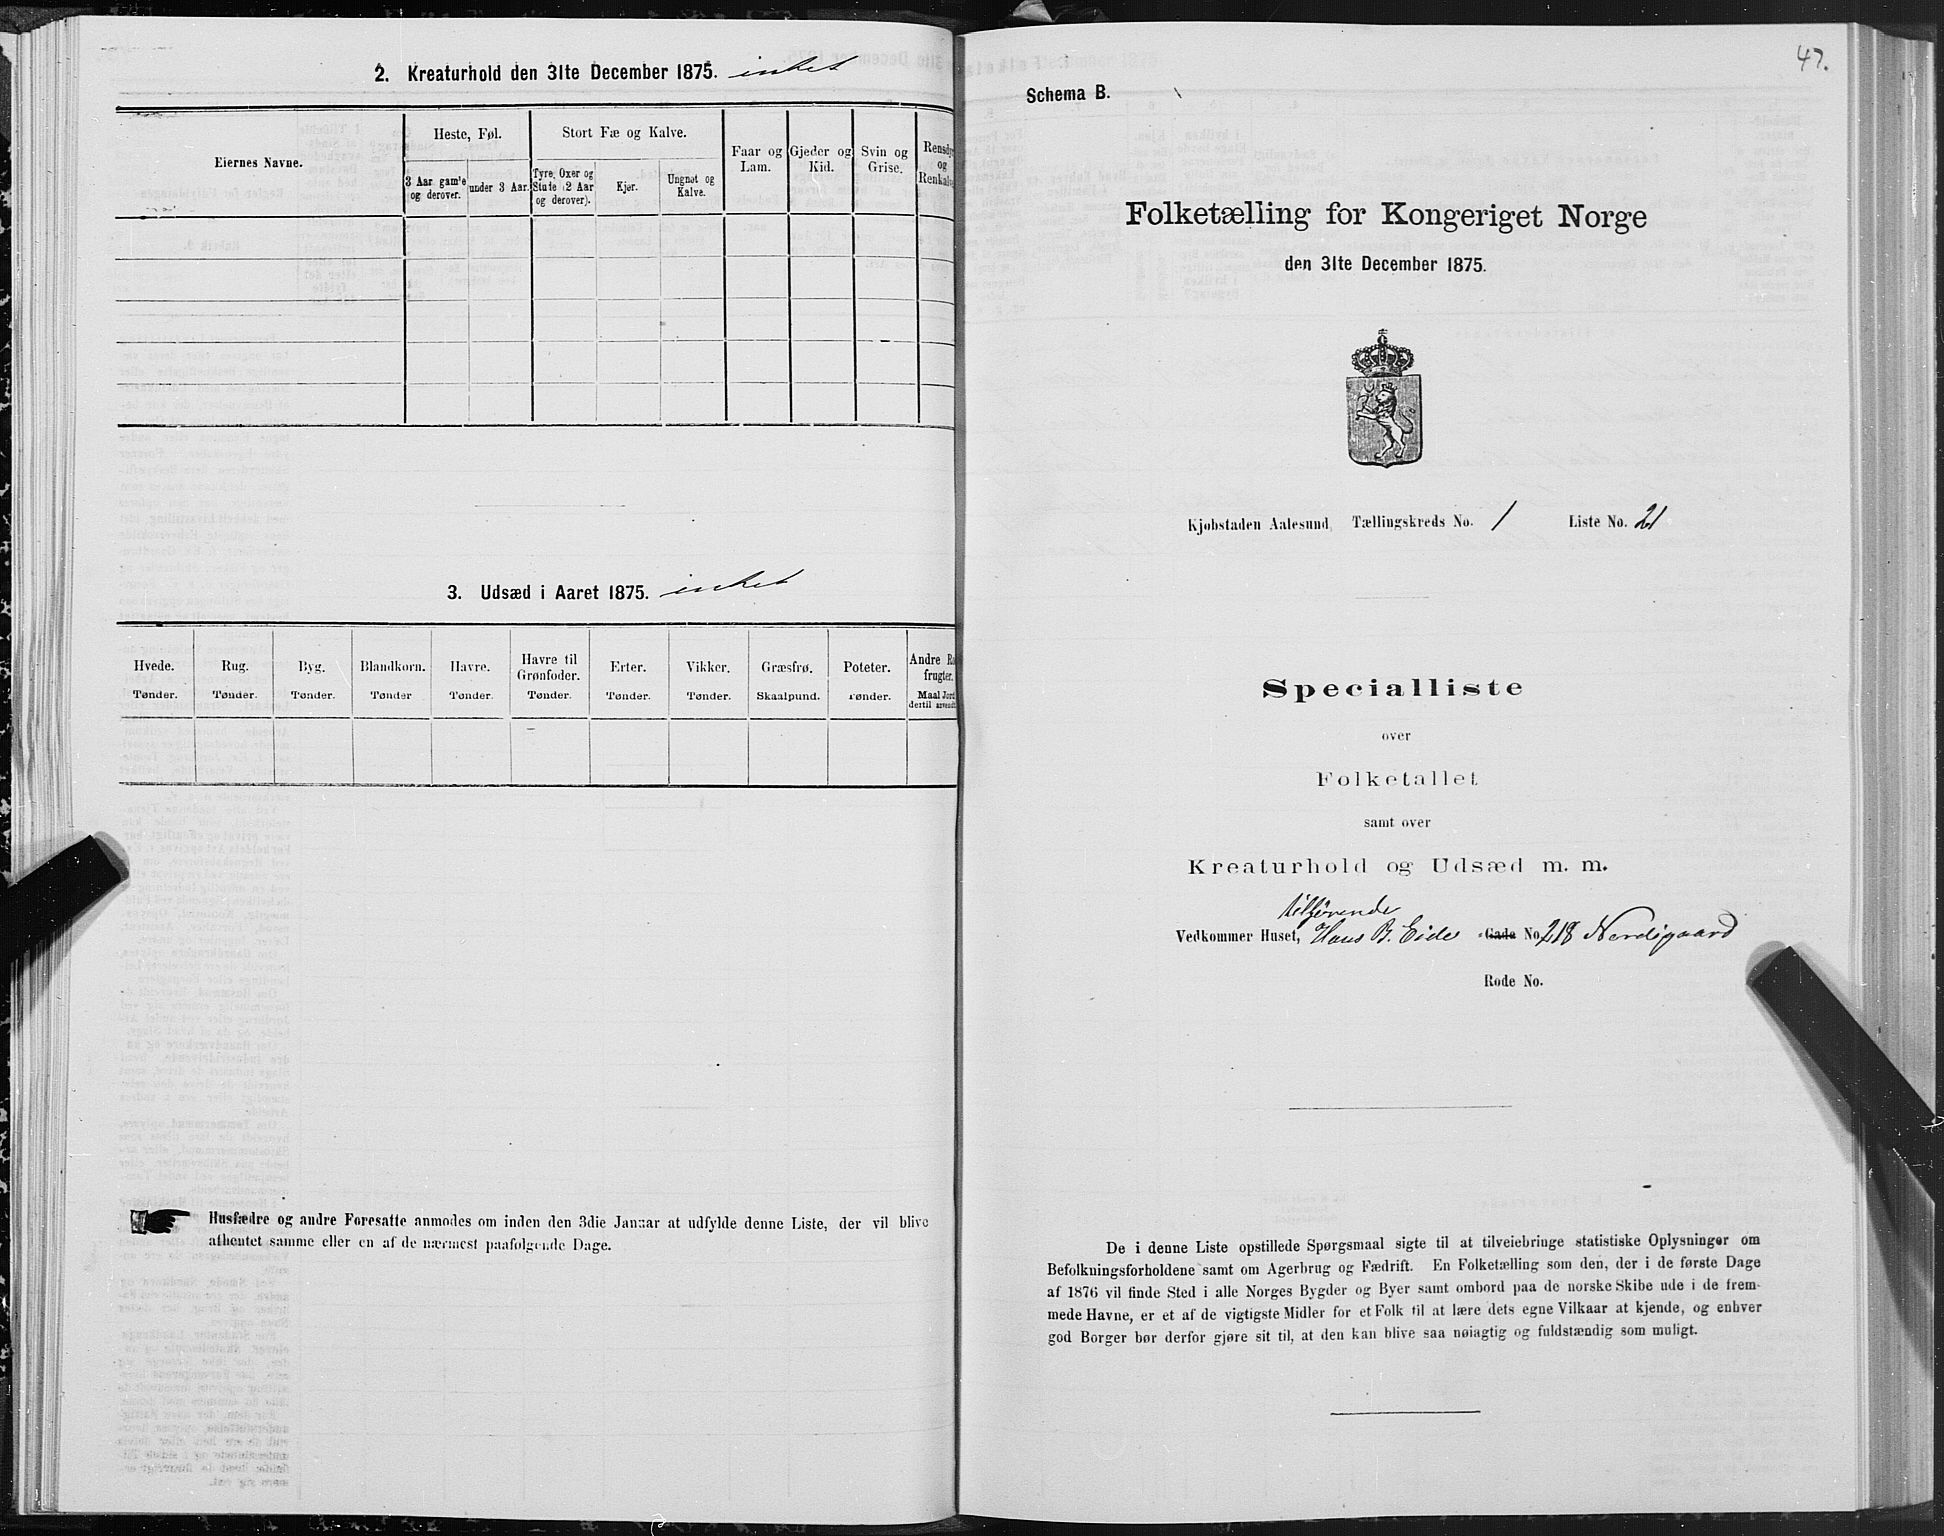 2. Kreaturhold den 31te December 1875. intet
Eiernes Navne.
Heste, Føl.
Stort Fæ og Kalve.
3 Aar gam'e og derover.
under 3 Aar.
Tyre, Oxer og Stude (2 Aar og derover).
Kjør.
Ungnøt og Kalve.
Faar og Lam.
Gjeder og Kid.
Svin og Grise.
Rensdyr og Renkalve
3. Udsæd i Aaret 1875. intet
Hvede. Rug. Byg. Blandkorn. Havre. Havre til Grønfoder. Erter. Vikker. Græsfrø. Poteter. Andre Ro frugter.
Tønder. Tønder. Tønder. Tønder Tønder. Tønder. Tønder. Tønder. Skaalpund. Tønder. Maal Jord dertil anvendt
Husfædre og andre Foresatte anmodes om inden den 3die Januar at udfylde denne Liste, der vil blive
afhentet samme eller en af de nærmest paafølgende Dage.
47.
Schema B.
Folketælling for Kongeriget Norge
den 31te December 1875.
Kjøbstaden Aalesund, Tællingskreds No. 1 Liste No. 21
Specialliste
over
Folketallet
samt over
Kreaturhold og Udsæd m. m.
tilhørende
Vedkommer Huset, Hans B. Eide -Gade No. 218 Nordigaard
Rode No.
De i denne Liste opstillede Spørgsmaal sigte til at tilveiebringe statistiske Oplysninger om
Befolkningsforholdene samt om Agerbrug og Fædrift. En Folketælling som den, der i de første Dage
af 1876 vil finde Sted i alle Norges Bygder og Byer samt ombord paa de norske Skibe ude i de frem-
mede Havne, er et af de vigtigste Midler for et Folk til at lære dets egne Vilkaar at kjende, og enhver
god Borger bør derfor gjøre sit til, at den kan blive saa nøiagtig og fuldstændig som muligt.